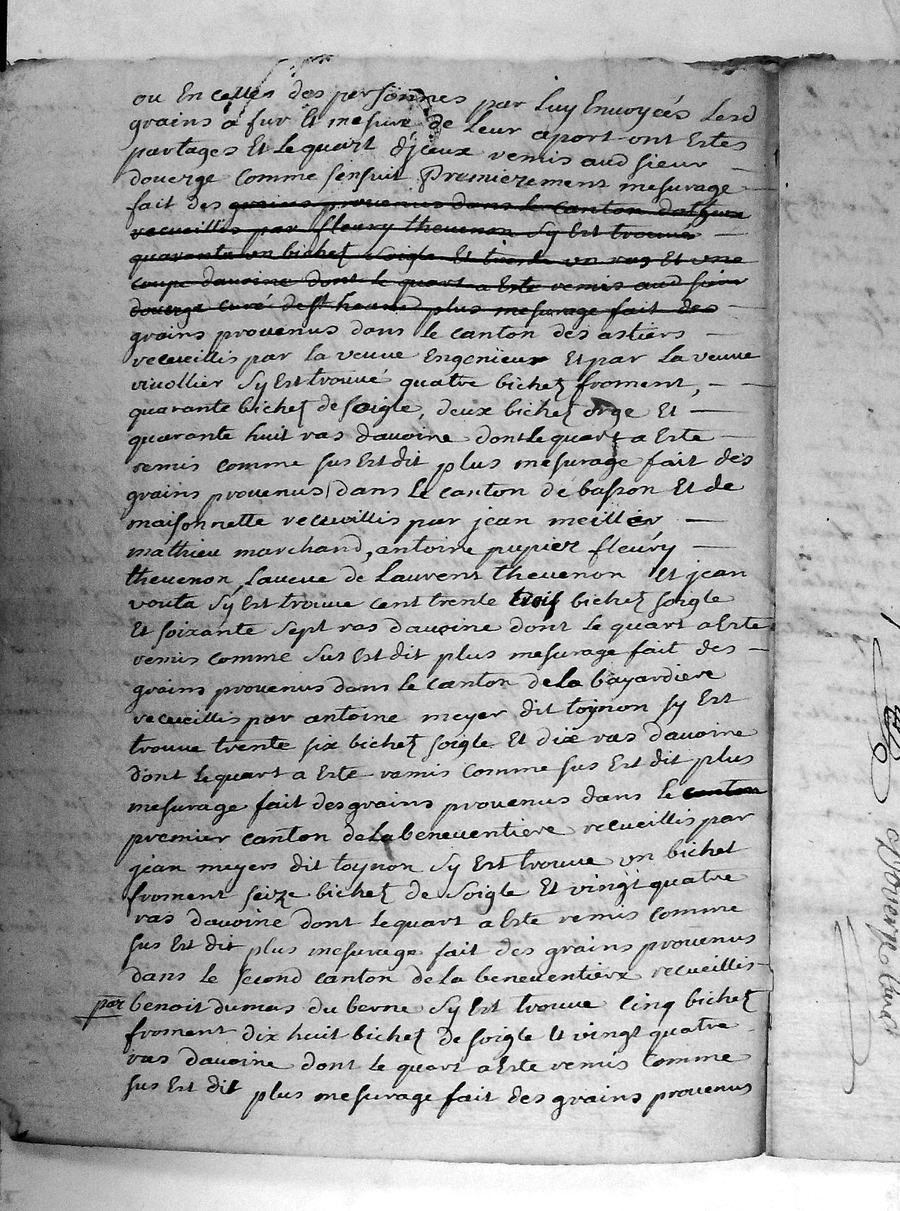 ou En celles des personnes par luy Envoyées Lesd
grains a fur Et mesure de Leur aport ont Estes
partages Et Le quart d'jceux remis aud sieur
douerge comme sensuit Premierement mesurage
fait des grains prouenus dans le canton
recueillis par fleury theuenon sy Est trouué
quarante un bichet soigle Et trente un ras Et une
coupe dauoine dont le quart a Esté remis aud sieur
douerge curé de st heand plus mesurage fait des
grains prouenus dans le canton des astiers
recueillis par la veuue Engenieux Et par La veuue
viuollier sy Est trouué quatre bichet froment,
quarante bichet de soigle, deux bichet orge Et
quarante huit ras dauoine dont le quart a Este
remis comme sus Est dit plus mesurage fait des
grains prouenus dans Le canton de basson Et de
maisonnette recueillis par jean meiller
mathieu marchand, antoine pupier fleury
theuenon, Laueue de Laurens theuenon Et jean
vouta sy Est trouue cent trente trois bichet soigle
Et soixante sept ras dauoine dont le quart a Este
remis comme sus Est dit plus mesurage fait des
grains prouenus dans Le canton de la bayardiere
recueillis par antoine meyer dit toynon sy Est
trouue trente six bichet soigle Et dix ras dauoine
dont Le quart a Este remis comme sus Est dit plus
mesurage fait des grains prouenus dans le canton
premier canton de la beneuentiere recueillis par
jean meyers dit toynon sy Est trouue un bichet
froment seize bichet de soigle Et vingt quatre
ras dauoine dont le quart a Este remis comme
sus Est dit plus mesurage fait des grains prouenus
dans le second canton de la beneuentiere recueillis
par benoit dumas du berne sy Est trouue cinq bichet
froment dix huit bichet de soigle Et vingt quatre
ras dauoine dont le quart a Este remis comme
sus Est dit plus mesurage fait des grains prouenus